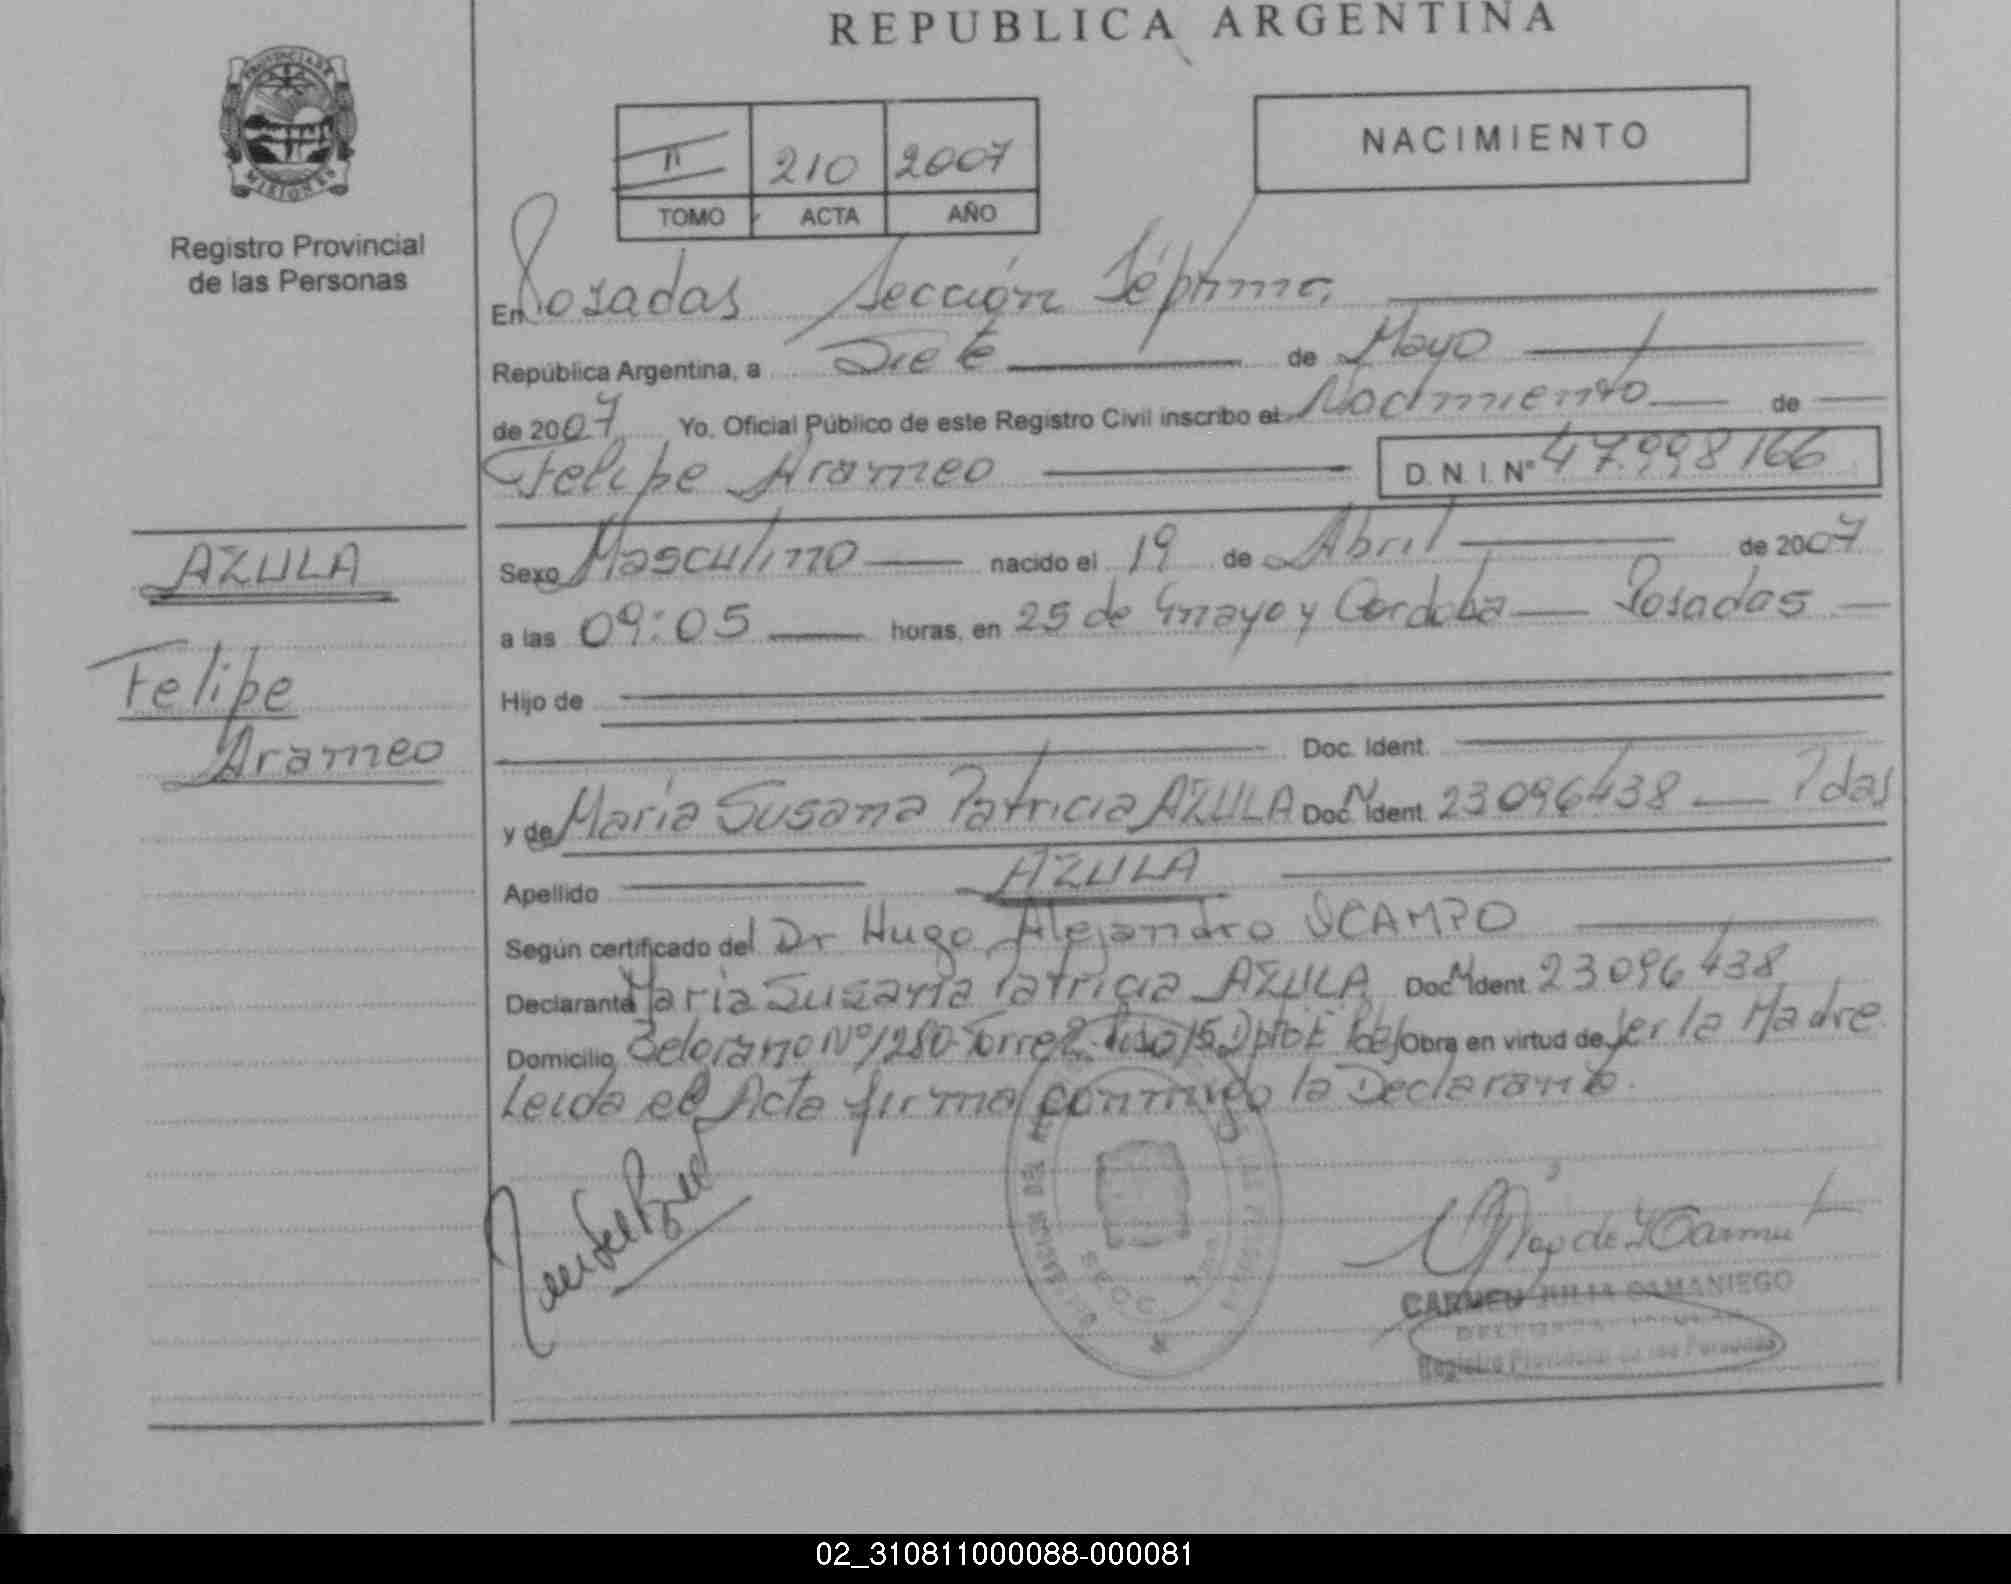 REPUBLICA ARGENTINA
PROVINCIA DE
MISIONES
Registro Provincial
de las Personas
II 210 2007
TOMO ACTA AÑO
NACIMIENTO
En Posadas Sección Séptima
República Argentina, a Siete de Mayo
de 2007 Yo, Oficial Público de este Registro Civil inscribo el Nacimiento de
Felipe Arameo D.N.I. Nº 47.998166
AZULA
Felipe
Arameo
Sexo Masculino nacido el 19 de Abril de 2007
a las 09:05 horas, en 25 de mayo y Cordoba Posadas
Hijo de
Doc. Ident.
y de María Susana Patricia AZULA Doc. Ident. 23096438 Pdas
Apellido AZULA
Según certificado del Dr Hugo Alejandro OCAMPO
Declarante María Susana Patricia AZULA Doc. Ident. 23096438
Domicilio Belgrano Nº 1280 Torre 2 Piso 15 Dpto E Obra en virtud de Ser la Madre
Leida el Acta firma conmigo la Declarante.
CARMEN JULIA CAMANIEGO
Registro Provincial de las Personas
02_310811000088-000081